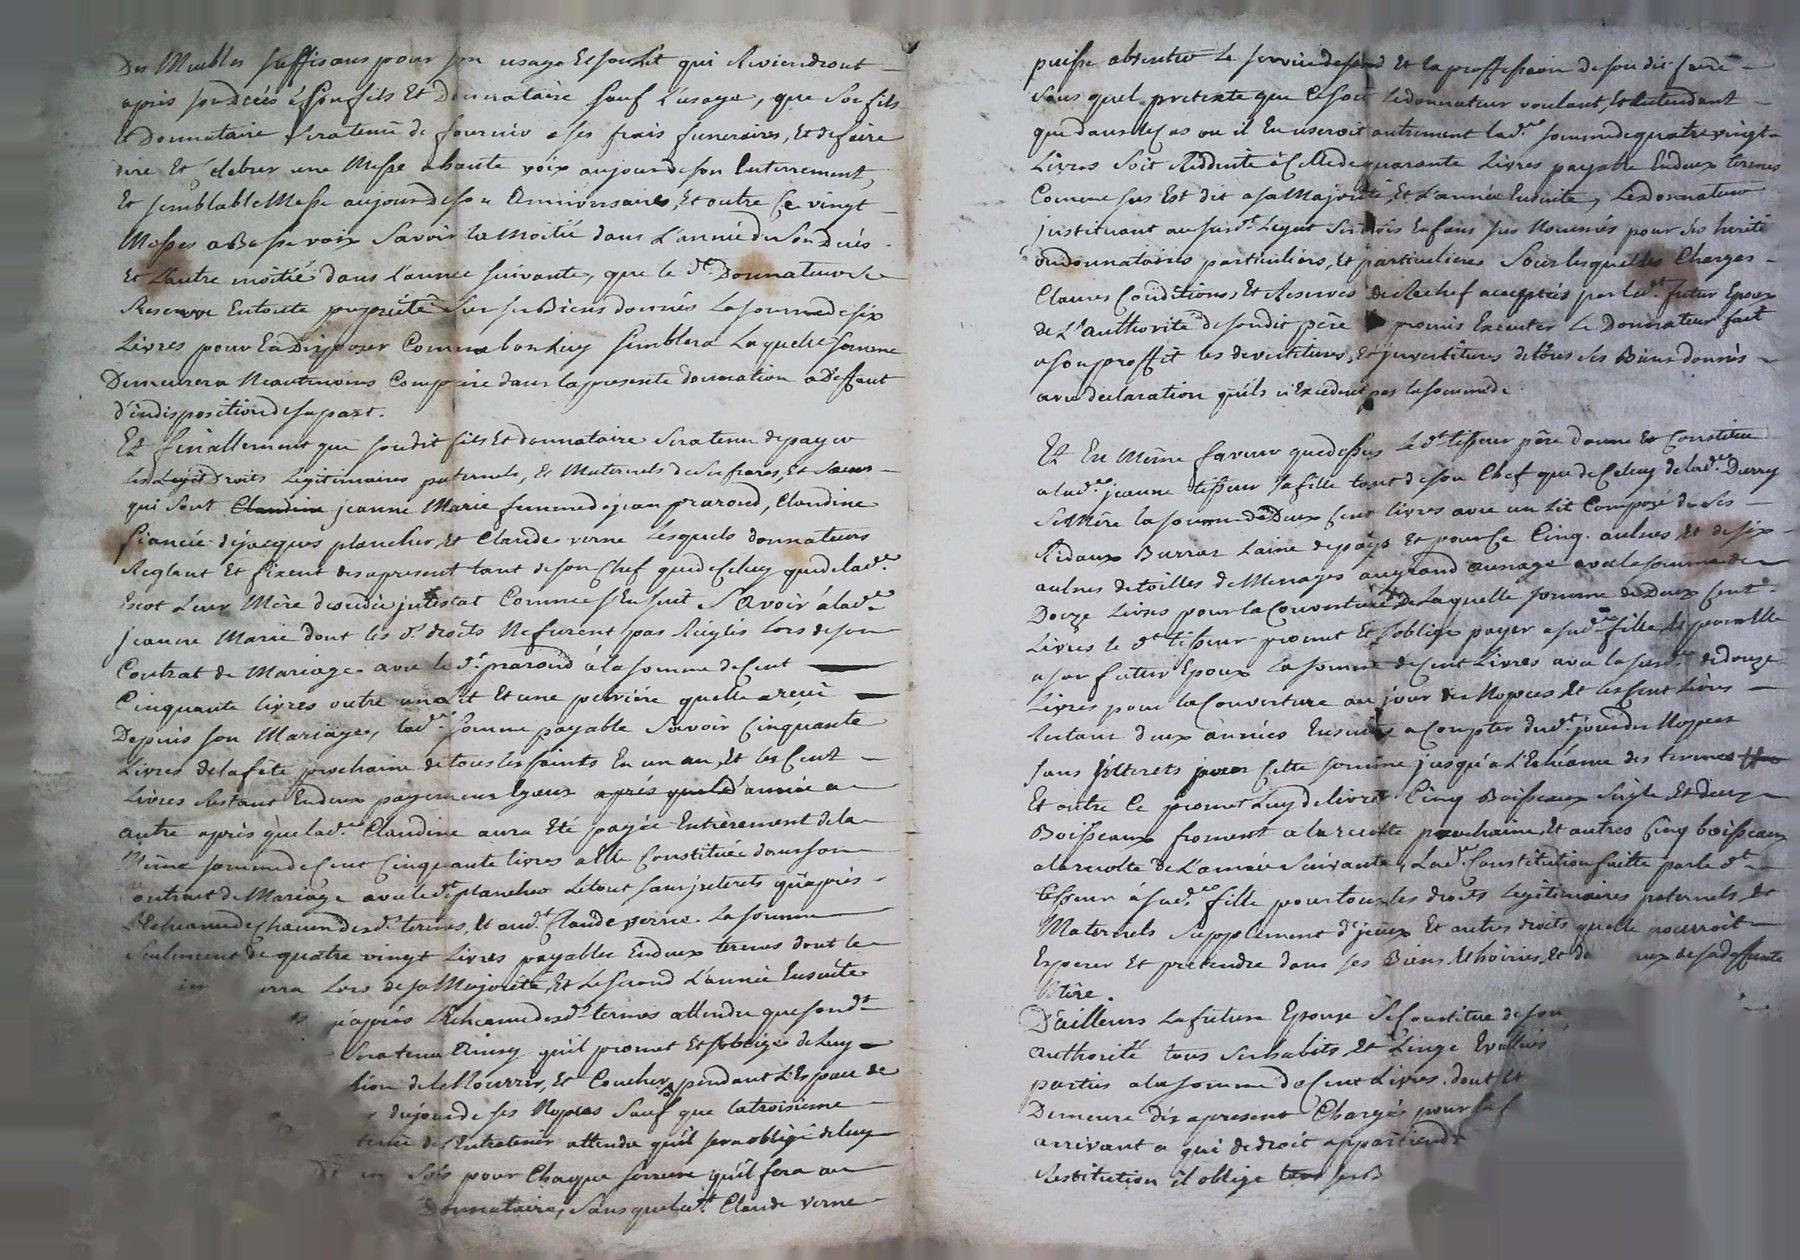 Des Meubles suffisans pour son usage Et son Lit qui Reviendront
après son Decès à son fils Et Donnataire sauf L'usage, que son fils
et Donnataire sera tenu de fournir a ses frais funeraires, Et de faire
dire Et Celebrer une Messe a haute voix au jour de son Enterrement,
Et semblable Messe au jour de son Anniversaire, Et outre Ce vingt
Messes a Basse voix Savoir la Moitié dans L'année de Son Decés
Et L'autre moitié dans L'année suivante, que le dt. Donnateur se
Reserve En toute propriété Sur ses Biens donnés La somme de six
Livres pour En Disposer Comme bon Luy semblera Laquelle somme
Demeurera Neantmoins Comprise dans la presente donnation a Deffaut
d'indisposition de sa part.
Et finallement que son dit fils Et donnataire sera tenu de payer
Les Legit Droits Legitimaires paternels, et Maternels de ses freres, Et Sœurs
qui sont Claudine jeanne Marie femme de jean prarond, Claudine
fiancée de jacques plancher, et Claude verne Lesquels donnateurs
Reglent Et fixent des apresent tant de son Chef que de Celuy que de lade.
Escot Leur Mère decedée intestat Comme s'En suit Savoir à lade.
jeanne Marie dont les ds. droits Ne furent pas Reiglés Lors de son
Contrat de Mariage avec le dt. prarond à la somme de Cent
Cinquante livres outre un lit Et une que elle a reçu
Depuis son Mariage, lade. somme payable Savoir Cinquante
Livres de la fête prochaine de tous les saints En un an, Et les Cent
Livres Restant En deux payemens Egaux après que lad année a
autre après que lade. Claudine aura Eté payée Entièrement de la
Même somme de Cent Cinquante livres a Elle Constituée dans son
Contrat de Mariage avec le dt. plancher Le tout sans interets qu'après
L'Echeance de Chacun des ds. termes, Et aud. Claude verne La somme
Seulement de quatre vingt Livres payable En deux termes dont le
Lors de sa Majorité, Et Le second L'année Ensuite
qu'après L'Echeance des ds. termes attendu que son dt
sera tenu Ainsy qu'il promet Et s'oblige de Luy
de le Nourrir, Et Coucher pendant L'Espace de
du jour de ses Nopces Sauf que la troisieme
tenu de L'Entretenir attendu qu'il sera obligé de luy
sols pour Chaque semeure qu'il fera au
Donnataire, Sans que led. Claude verne
puisse absenter Le service de son d Et la proffession de son dit frère
sous quel pretexte que Ce soit Le donnateur voulant, Et Entendant
que dans le Cas ou il En useroit autrement lade. somme de quatre vingt
Livres soit Redduite à Celle de quarante Livres payable En deux termes
Comme sus Est dit a sa Majorité, Et L'année Ensuite, Le donnateur
instituant au susd. Legat ses trois Enfans sus Nommés pour ses herité
ou donnataires particuliers, Et particulieres Sous lesquelles Charges
Clauses Conditions, Et Reserves de Rechef acceptées par led. futur Epoux
de L'authorité de son dit père promis Executer Le Donnateur fait
a son proffit les devestitures, Et investitures de tous ses Biens donnés
avec declaration qu'ils n'Excedent pas la somme de
Et En Même faveur que dessus Le dt. tisseur père donne Et Constitue
a lade. jeanne tisseur sa fille tant de son Chef que de Celuy de lade. Durry
Sa Mère la somme de Deux Cent livres avec un Lit Composé de ses
Ridaux Burras Laine de pays Et pour Ce Cinq aulnes, Et de six
aulnes de toilles de Menages au grand aunage avec la somme de
Douze Livres pour la Couverture De Laquelle somme de Deux Cent
Livres le dt. tisseur promet Et s'oblige payer a sade. fille
a son futur Epoux La somme de Cent Livres avec la susde. de douze
Livres pour la Couverture au jour des Nopces Et les Cent Livres
Restant deux années Ensuite a Compter dud. jour des Nopces
sans interets pour Cette somme jusqu'a L'Echéance des termes
Et outre Ce promet Luy delivrer Cinq Boisseaux Seigle Et deux
Boisseaux froment a la recolte prochaine, Et autres Cinq boisseaux
a la recolte de L'année Suivante, Lade. Constitution faitte par le dt
tisseur à sade. fille pour tous les droits Legitimaires paternels, Et
Maternels Supplement d'jceux Et autres droits qu'elle pourroit
Esperer Et pretendre dans ses Biens, Et hoiries, Et de ceux de sa deffunte
Mère.
D'ailleurs La future Epouse Se Constitue de son
authorité tous ses habits, Et Linge Evalués
parties a la somme de Cent Livres, dont Et
Demeure dès apresent Chargés pour
arrivant a qui de droit appartiend
Restitution il oblige tous ses B